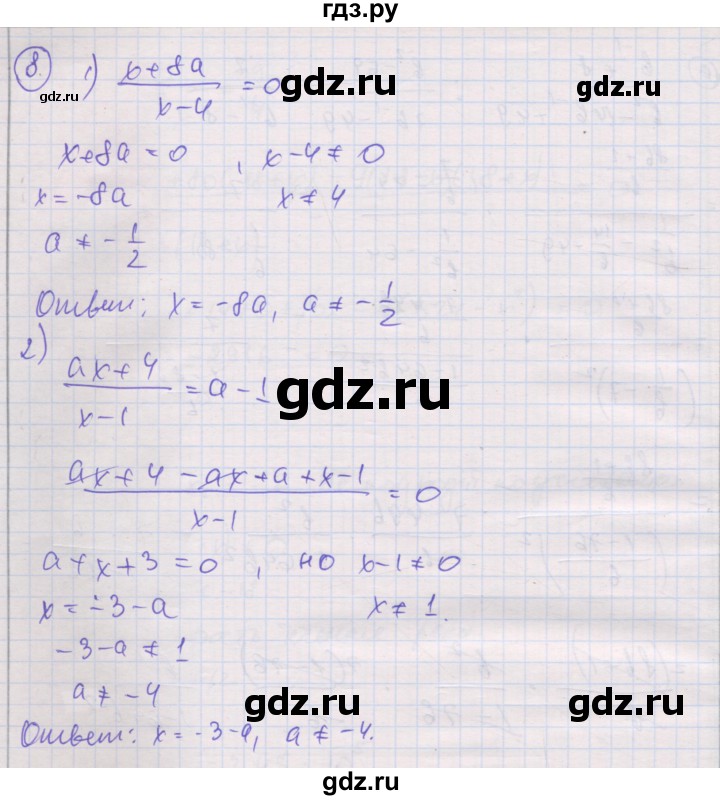 гдз.ру
8. 1) (x+8a)/(x-4) = 0
gdz.ru
gdz.ru
x+8a=0 , x-4≠0
x=-8a x≠4
gdz.ru
gdz.ru
a≠-1/2
Ответ: x=-8a, a≠-1/2
2) (ax+4)/(x-1) = a-1
gdz.ru
(ax+4-ax+a+x-1)/(x-1) = 0
gdz.ru
gdz.ru
a+x+3=0 , но x-1≠0
x=-3-a x≠1.
-3-a≠1
a≠-4
gdz.ru
gdz.ru
Ответ: x=-3-a, a≠-4.
gdz.ru